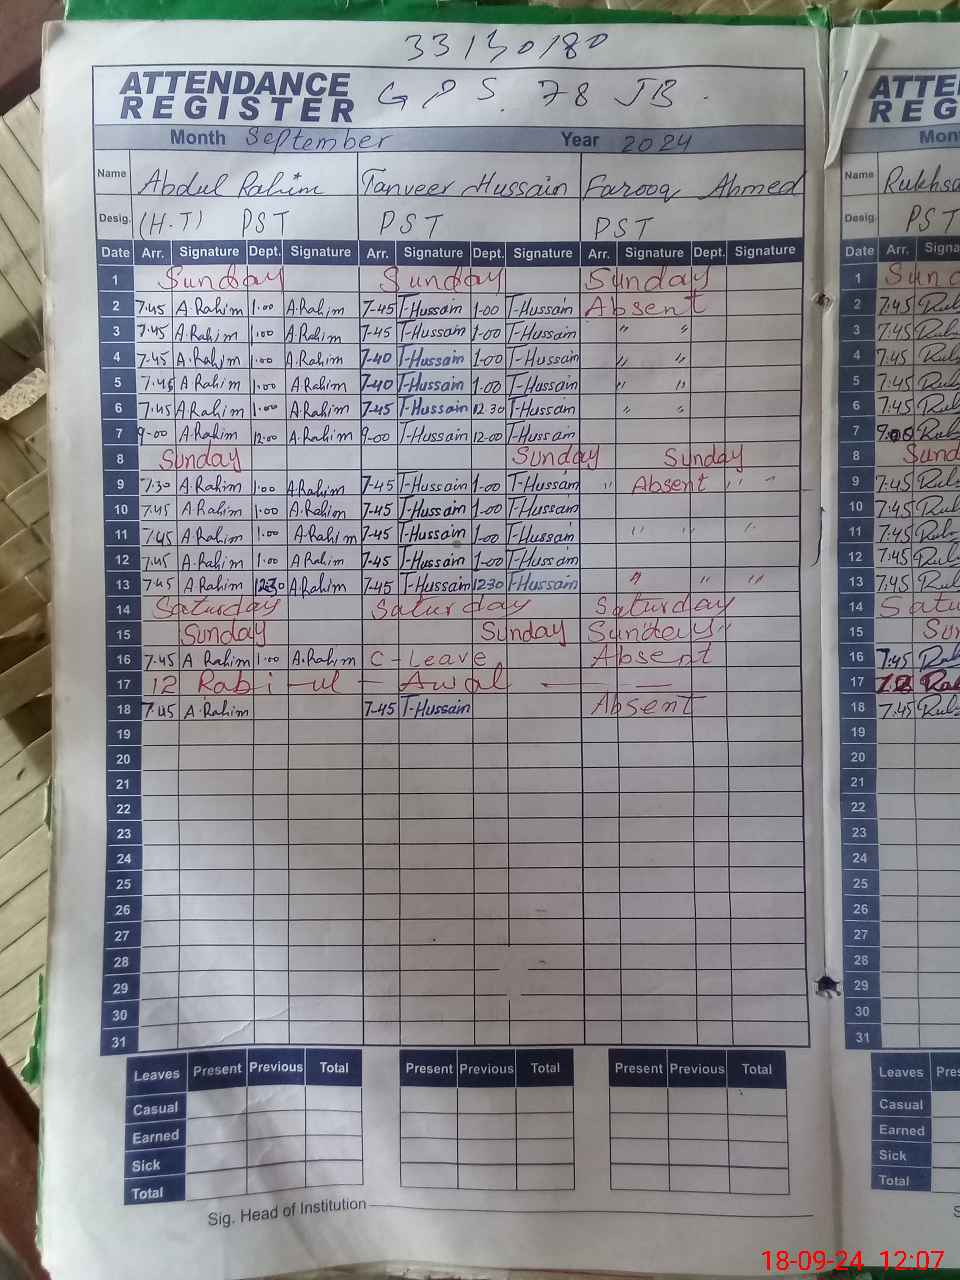 33130180
ATTENDANCE REGISTER G P S. 78 JB.
Month September Year 2024
Name Abdul Rahim Tanveer Hussain Farooq Ahmed
Desig. (H.T) PST PST PST
Date Arr. Signature Dept. Signature Arr. Signature Dept. Signature Arr. Signature Dept. Signature
1 Sunday Sunday Sunday
2 7.45 A.Rahim 1.00 A.Rahim 7-45 T-Hussain 1-00 T-Hussain Absent
3 7.45 A.Rahim 1.00 A.Rahim 7-45 T-Hussain 1-00 T-Hussain " "
4 7.45 A.Rahim 1.00 A.Rahim 7-40 T-Hussain 1-00 T-Hussain " "
5 7.45 A.Rahim 1.00 A.Rahim 7-40 T-Hussain 1-00 T-Hussain " "
6 7.45 A.Rahim 1.00 A.Rahim 7-45 T-Hussain 12.30 T-Hussain " "
7 9-00 A.Rahim 12.00 A.Rahim 9-00 T-Hussain 12-00 T-Hussain
8 Sunday Sunday Sunday
9 7.30 A.Rahim 1.00 A.Rahim 7-45 T-Hussain 1-00 T-Hussain " Absent " "
10 7.45 A.Rahim 1.00 A.Rahim 7-45 T-Hussain 1-00 T-Hussain
11 7.45 A.Rahim 1.00 A.Rahim 7-45 T-Hussain 1-00 T-Hussain " " "
12 7.45 A.Rahim 1.00 A.Rahim 7-45 T-Hussain 1-00 T-Hussain
13 7.45 A.Rahim 1230 A.Rahim 7-45 T-Hussain 1230 T-Hussain " " "
14 Saturday Saturday Saturday
15 Sunday Sunday Sunday
16 7.45 A.Rahim 1.00 A.Rahim C-Leave Absent
17 12 Rabi-ul-Awal
18 7.45 A.Rahim 7-45 T-Hussain Absent
19
20
21
22
23
24
25
26
27
28
29
30
31
Leaves Present Previous Total Present Previous Total Present Previous Total
Casual
Earned
Sick
Total
Sig. Head of Institution
Name
Desig. PST
Date Arr.
1
2 7.45
3 7.45
4 7.45
5 7.45
6 7.45
7 9.00
8
9 7.45
10 7.45
11 7.45
12 7.45
13 7.45
14
15
16 7.45
17
18 7.45
19
20
21
22
23
24
25
26
27
28
29
30
31
Leaves
Casual
Earned
Sick
Total
18-09-24 12:07